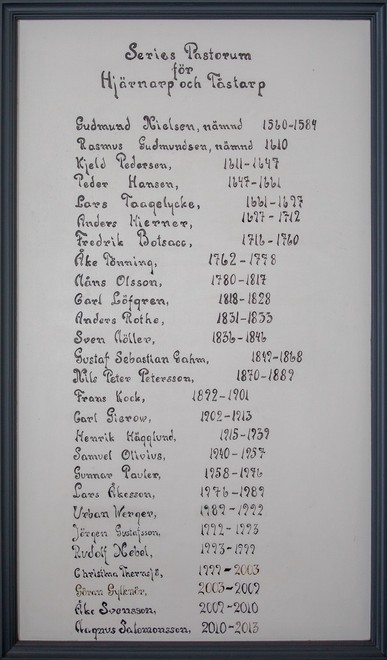 Series Pastorum
för
Hjärnarp och Tåstarp
Gudmund Nielsen, nämnd 1560-1584
Rasmus Gudmundsen, nämnd 1610
Kjeld Pedersen, 1611-1647
Peder Hansen, 1647-1661
Lars Taagelycke, 1661-1697
Anders Hierner, 1697-1712
Fredrik Botsacc, 1716-1760
Åke Rönning, 1762-1778
Måns Olsson, 1780-1817
Carl Löfgren, 1818-1828
Anders Rothe, 1831-1833
Sven Möller, 1836-1846
Gustaf Sebastian Cahm, 1849-1868
Nils Peter Petersson, 1870-1889
Frans Kock, 1892-1901
Carl Gierow, 1902-1913
Henrik Hägglund, 1915-1939
Samuel Olivius, 1940-1957
Gunnar Pauler, 1958-1976
Lars Åkesson, 1976-1989
Urban Werger, 1989-1992
Jörgen Gustafsson, 1992-1993
Rudolf Nobel, 1993-1999
Christina Thernsjö, 1999-2003
Göran Gyllenör, 2003-2009
Åke Svensson, 2009-2010
Magnus Salomonsson, 2010-2013